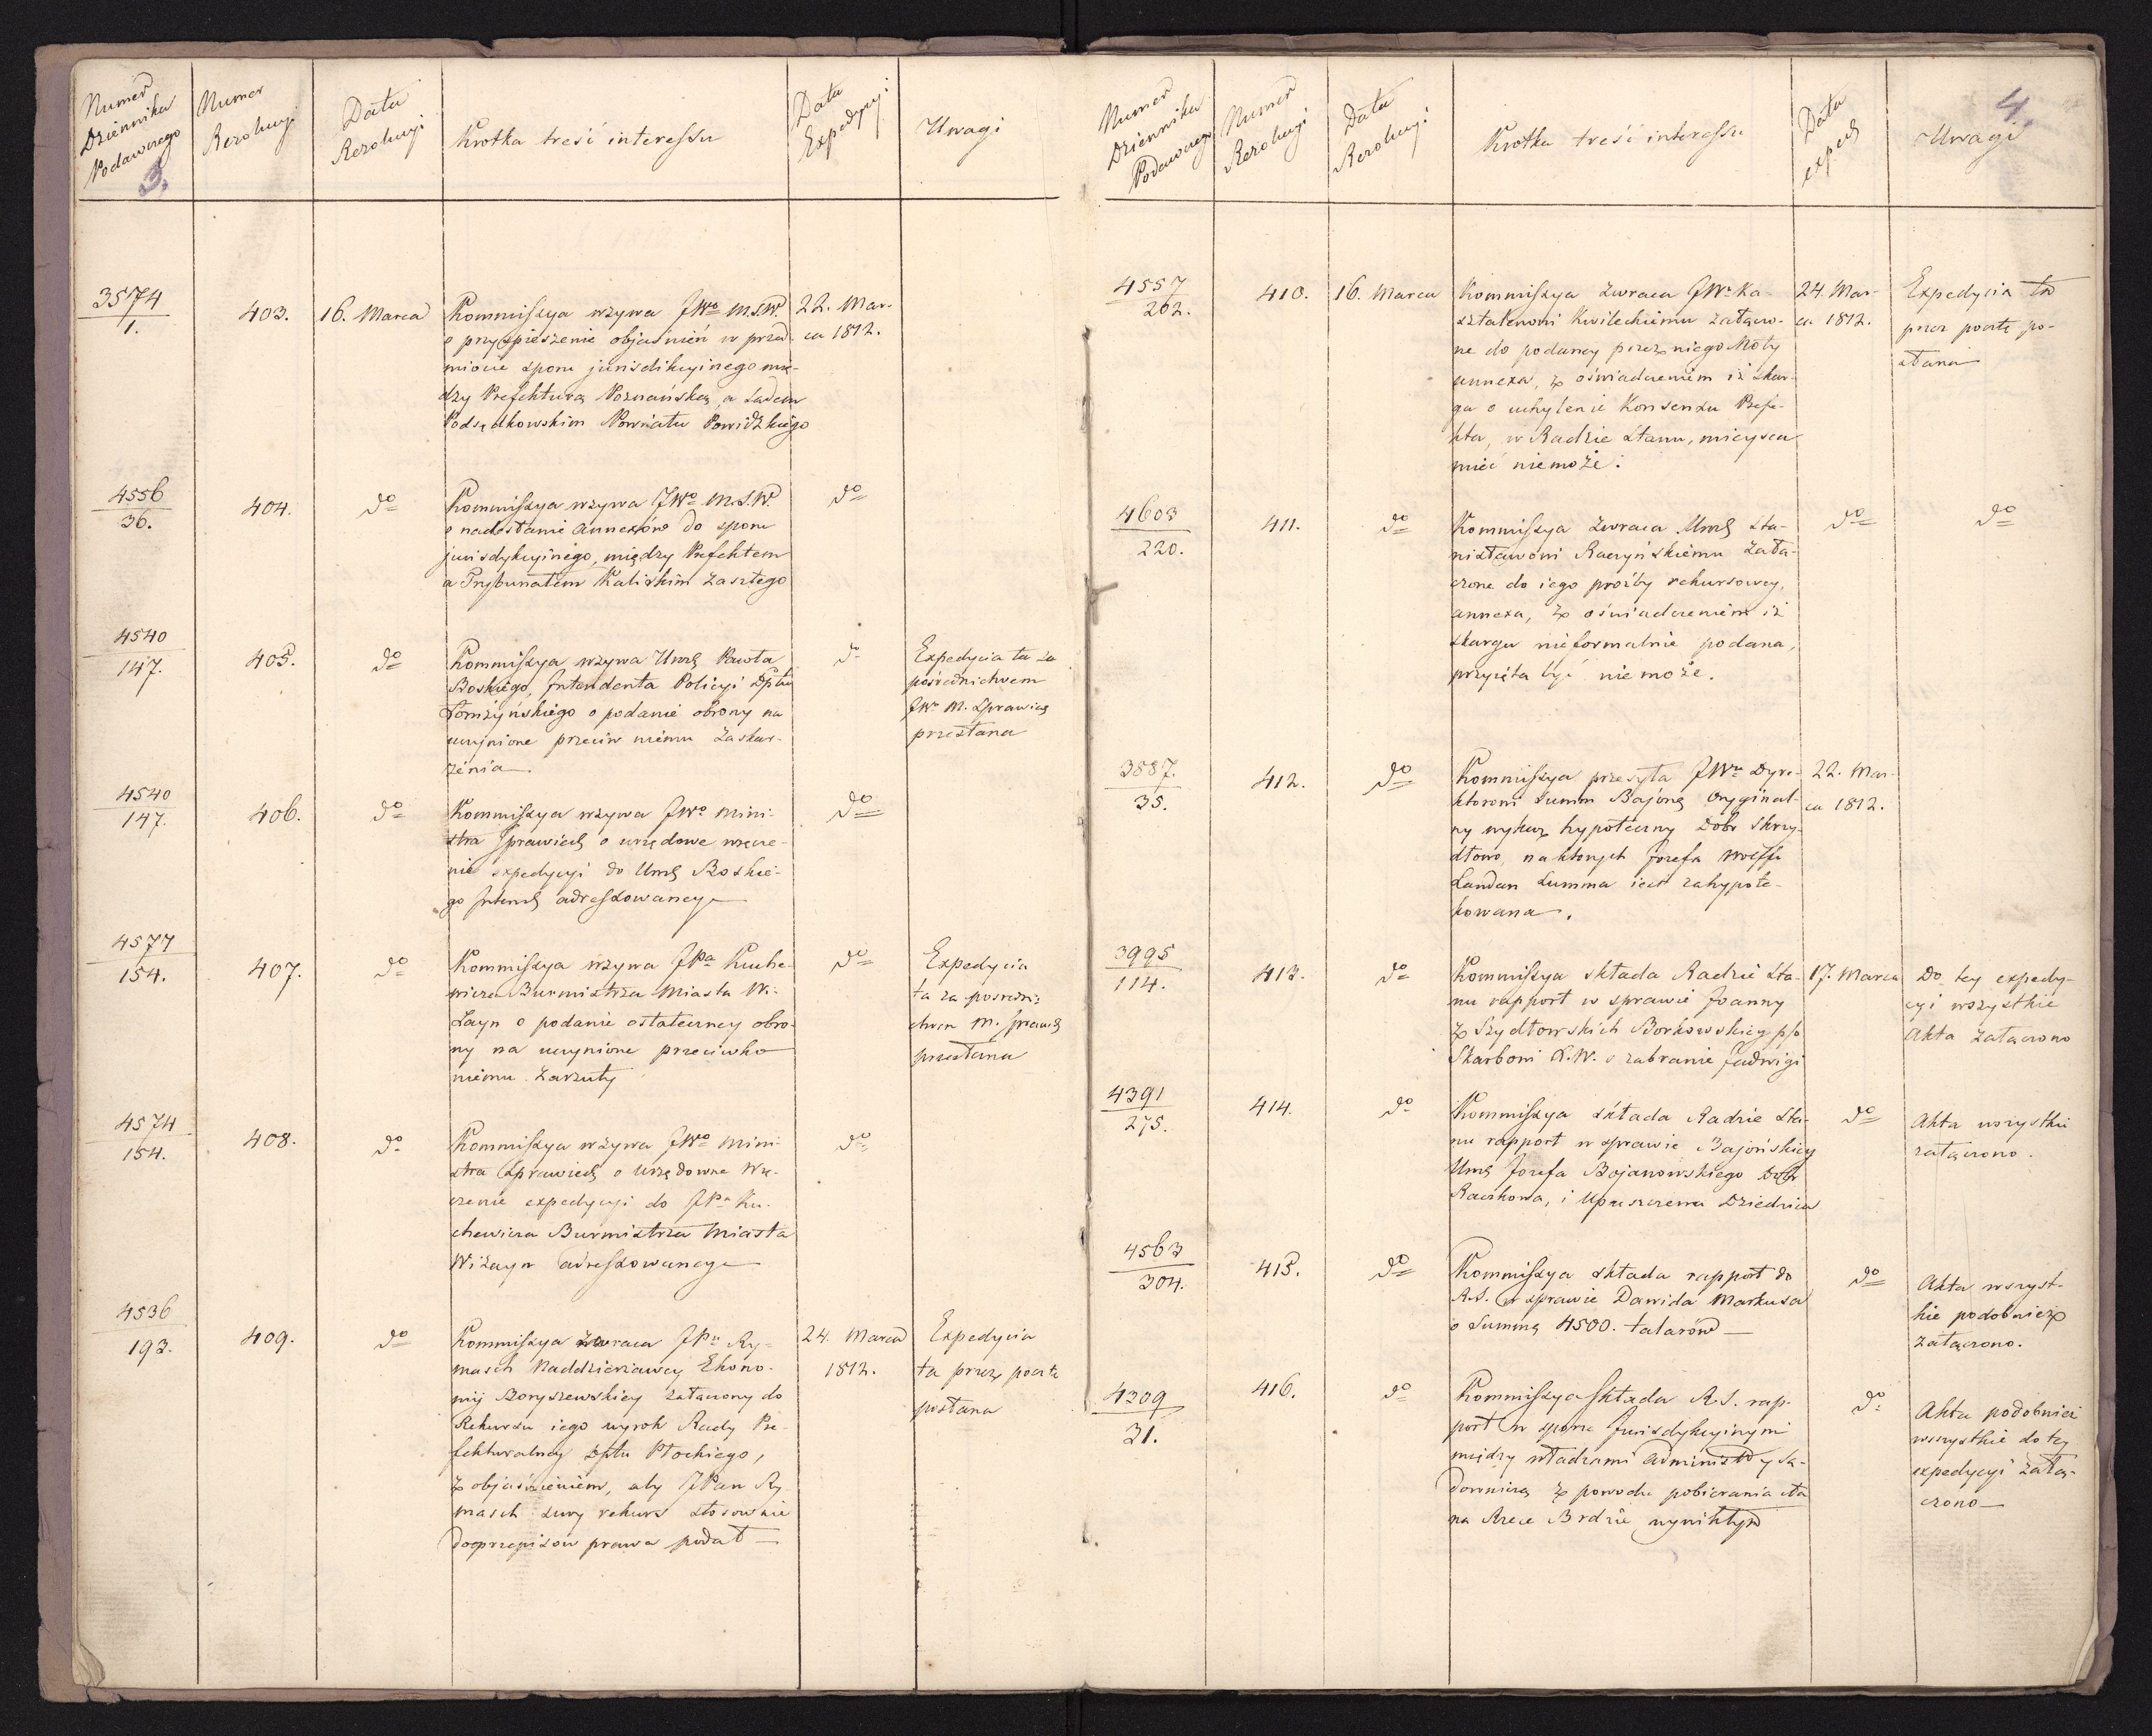 Numer
Dziennika
Podawczego
3.
Numer
Rezolucyi
Data
Rezolucyi
Krotka treść interessu
Data
Expedycyi
Uwagi
3574
1.
403.
16. Marca
Kommissya wzywa JWo M.S.W.
o przyśpieszenie objaśnień w przed-
miocie sporu jurisdikcyinego mię-
dzy Prefekturą Poznańską, a Sądem
Podsędkowskim Powiatu Powidzkiego
22. Mar-
ca 1812.
4556
36.
404.
do
Kommissya wzywa JWo M.S.W.
o nadesłanie Annexów do sporu
jurisdykcyinego, między Prefektem
a Trybunałem Kaliskim zaszłego
do
4540
147.
405.
do
Kommissya wzywa Urod. Pawła
Boskiego, Intendenta Policyi Dptu
Łomżyńskiego o podanie obrony na
uczynione przeciw niemu zaskar-
żenia
do
Expedycia ta za
pośrednictwem
JWo M. Sprawied.
przesłana
4540
147.
406.
do
Kommissya wzywa JWo Mini-
stra Sprawied. o urzędowe wręcze-
nie expedycyi do Urod. Boskie-
go Intend. adressowaney
do
4577
154.
407.
do
Kommissya wzywa JPa Kuche-
wicza Burmistrza Miasta Wi-
żayn o podanie ostateczney obro-
ny na uczynione przeciwko
niemu zarzuty
do
Expedycia
ta za posredni-
ctwem M. Sprawied.
przesłana
4574
154.
408.
do
Kommissya wzywa JWo Mini-
stra Sprawied. o Urzędowne Wrę-
czenie expedycyi do JPa Ku-
chewicza Burmistrza Miasta
Wiżayn adressowaney
do
4536
193.
409.
do
Kommissya zwraca JPu Ry-
masch Naddzierżawcy Ekono-
mij Boryszewskiey załączony do
Rekursu iego wyrok Rady Pre-
fekturalney Dptu Płockiego,
z objaśnieniem, aby JPan Ry-
masch swoy rekurs stosownie
do przepisów prawa podał
24. Marca
1812.
Expedycia
ta przez pocztę
posłana
Numer
Dziennika
Podawczego
Numer
Rezolucyi
Data
Rezolucyi
Krotka treść interessu
Data
exped.
4.
Uwagi
4557
202.
410.
16. Marca
Kommissya zwraca JWu Ka-
sztelanowi Kwileckiemu załączo-
ne do podaney przez niego Noty
annexa, z oświadczeniem iż skar-
ga o uchylenie Konsensu Prefe-
kta, w Radzie Stanu, mieysca
mieć niemoże.
24. Mar-
ca 1812.
Expedycia ta
przez pocztę po-
słana
4603
220.
411.
do
Kommissya zwraca Urod. Sta-
nisławowi Raczyńskiemu załą-
czone do iego prośby rekursowey,
annexa, z oświadczeniem iż
skarga nieformalnie podana,
przyięta być niemoże.
do
do
3887.
35.
412.
do
Kommissya przesyła JWu Dyre-
ktorowi Summ Bajońs. Oryginal-
ny wykaz hypoteczny Dobr Skrzy-
dłowo, na których Jozefa Wolffa
Landau Summa iest zahypote-
kowana.
22. Mar-
ca 1812.
3995
114.
413.
do
Kommissya składa Radzie Sta-
nu rapport w sprawie Joanny
z Szydłowskich Borkowskiey p/o
Skarbowi X.W. o zabranie Jadwigi
17. Marca
Do tey expedy-
cyi wszystkie
Akta załączono
4391
275.
414.
do
Kommissya składa Radzie Sta-
nu rapport w sprawie Bajońskiey
Urod. Jozefa Bojanowskiego Dobr
Raczkowa, i Upuszczewa Dziedzica
do
Akta wszystkie
załączono.
4563
304.
415.
do
Kommissya składa rapport do
R.S. w sprawie Dawida Markusa
o Summę 4500. talarów
do
Akta wszyst-
kie podobnież
załączono.
4309
31.
416.
do
Kommissya składa R.S. rap-
port w sporze Jurisdykcyinym
między władzami Administr. y Są-
downiczą z powodu pobierania cła
na Rzece Brdzie wynikłym
do
Akta podobnież
wszystkie do tey
expedycyi załą-
czono